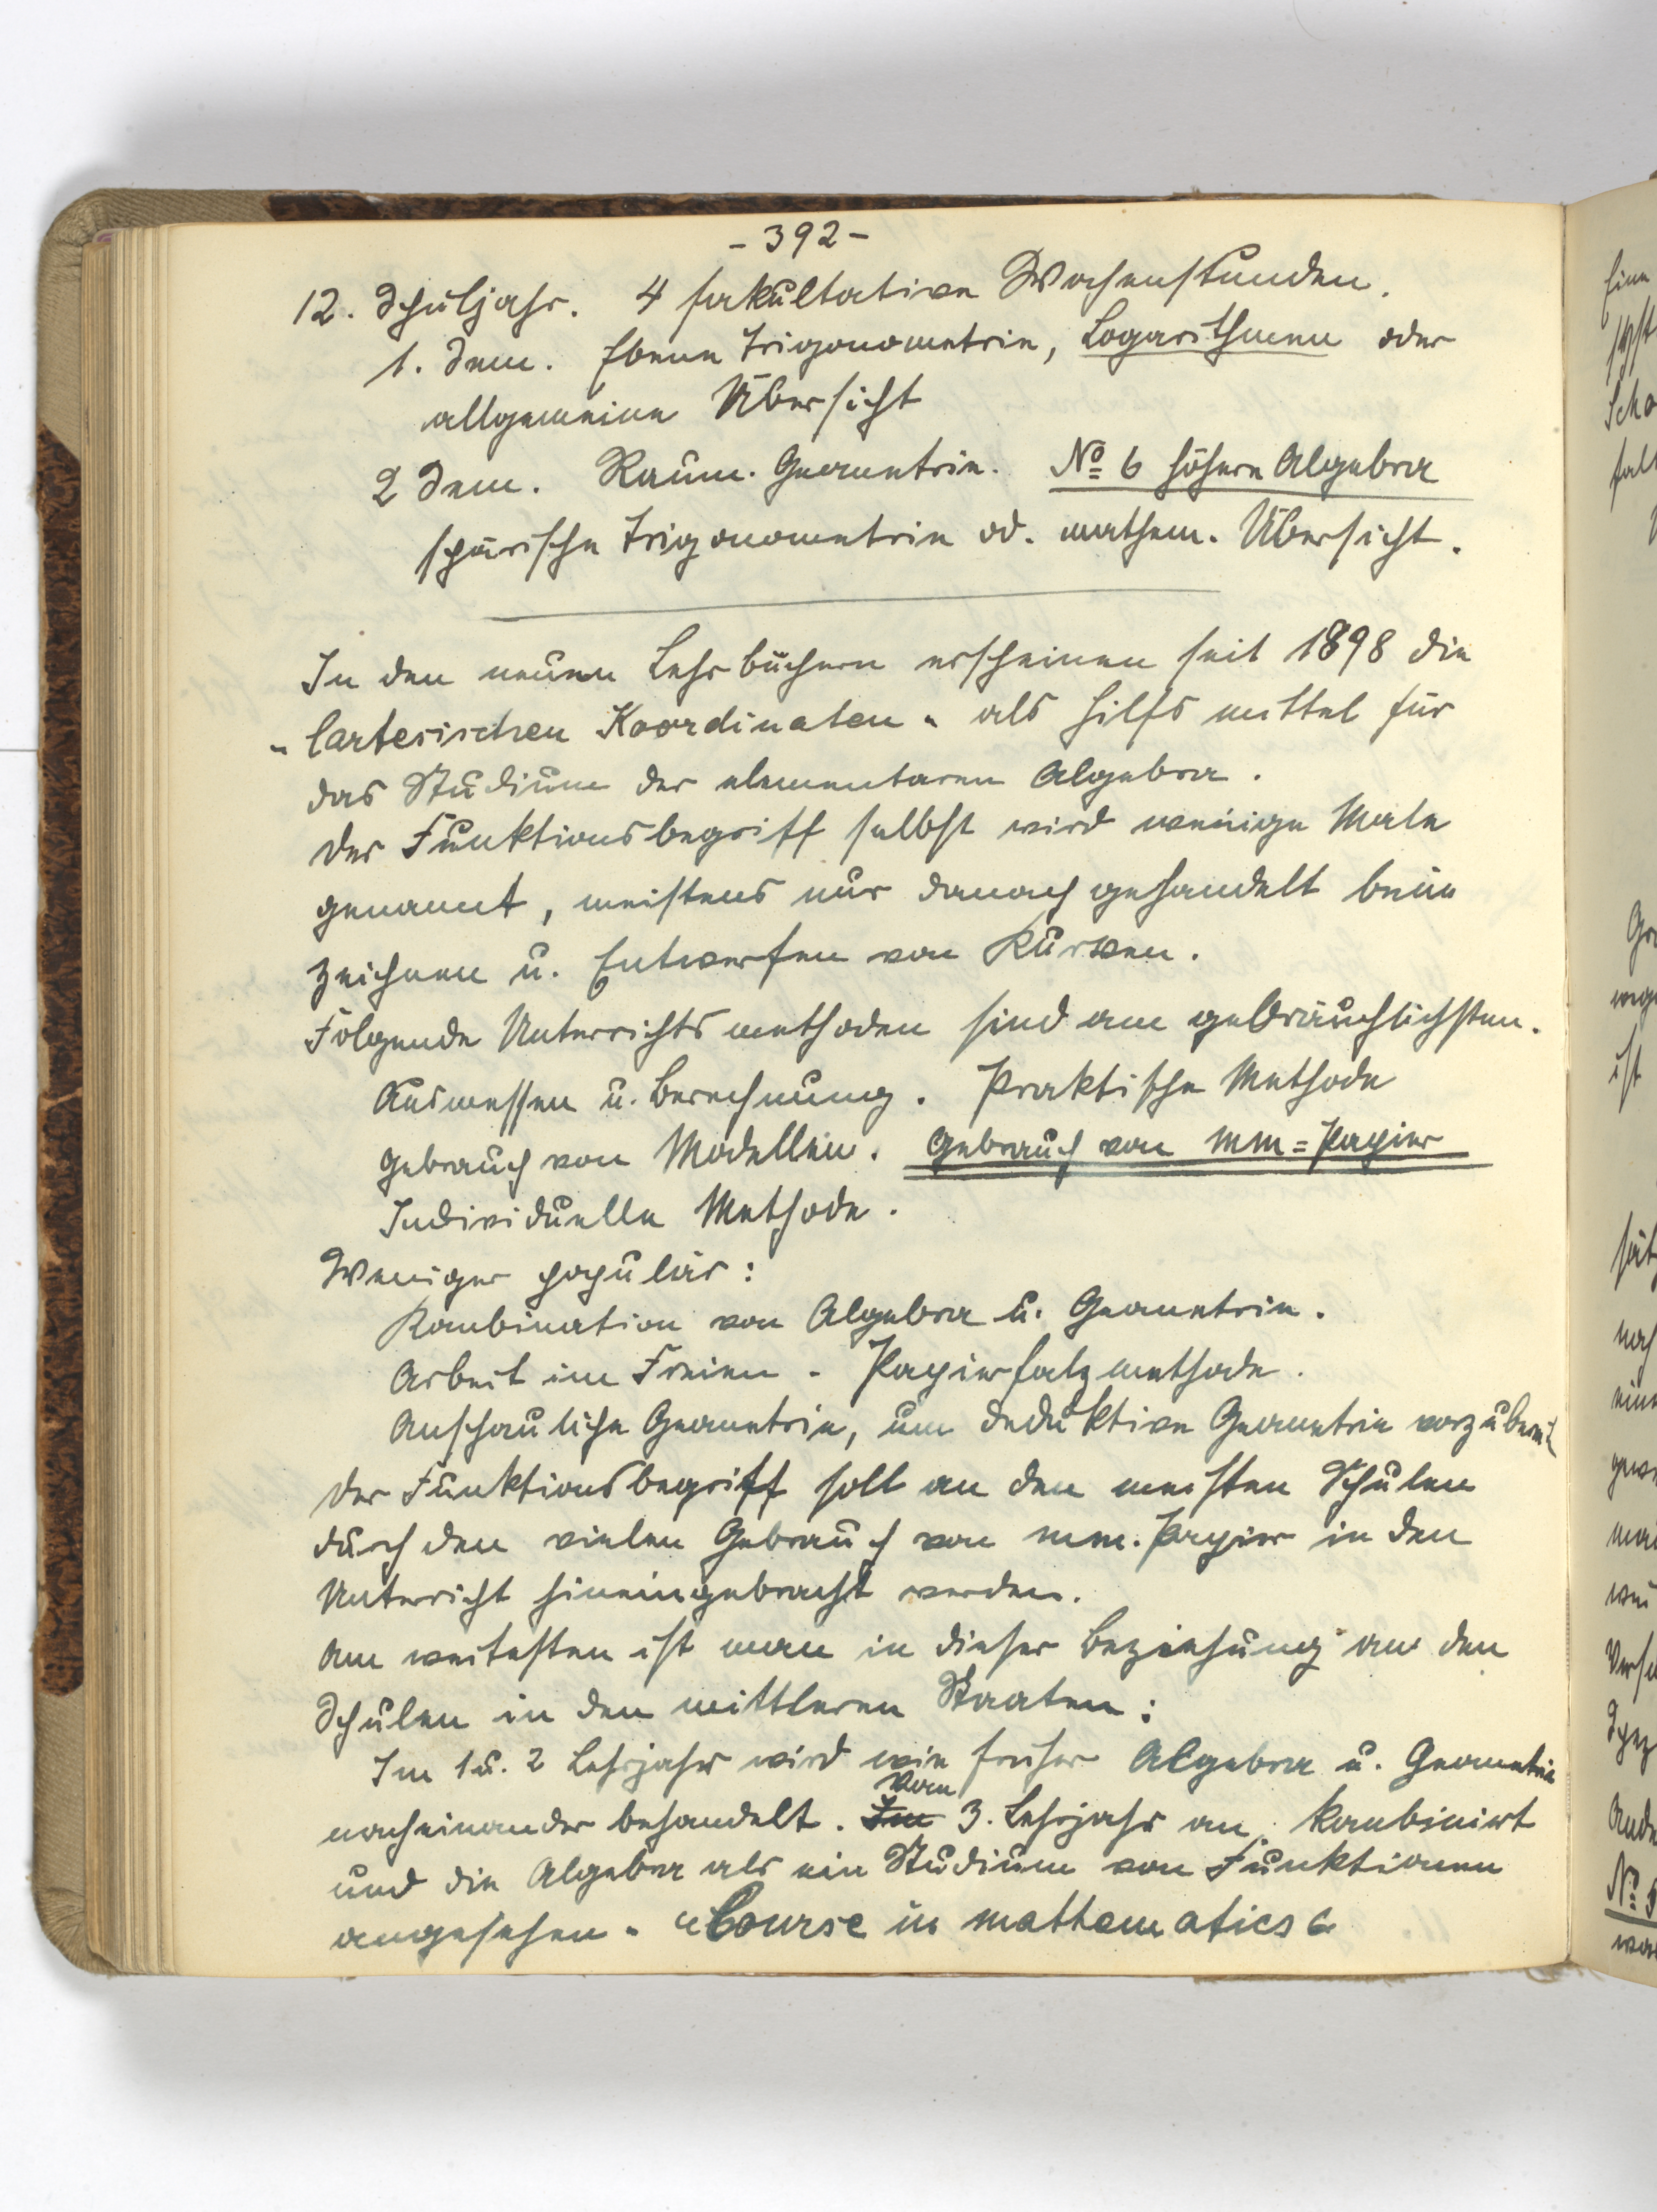 - 392 -
12. Schuljahr. 4 fakultative Wochenstunden.
1. Sem. Ebene Trigonometrie, Logarithmen oder
allgemeine Übersicht
2 Sem. Räum. Geometrie. No 6 höhere Algebra
spärische Trigonometrie od. mathem. Übersicht.
In den neuen Lehrbüchern erscheinen seit 1898 die
"Cartesischen Koordinaten" als Hilfsmittel für
das Studium der elementaren Algebra.
Der Funktionsbegriff selbst wird wenige Male
genannt, meistens nur danach gehandelt beim
Zeichnen u. Entwerfen von Kurven.
Folgende Unterrichtsmethoden sind am gebräuchlichsten.
Ausmessen u. Berechnung. Praktische Methode
Gebrauch von Modellen. Gebrauch von mm=Papier
Individuelle Methode.
Weniger populär:
Kombination von Algebra u. Geometrie.
Arbeit im Freien - Papierfalzmethode.
Anschauliche Geometrie, um deduktive Geometrie
Der Funktionsbegriff soll an den meisten Schulen
durch den vielen Gebrauch von mm. Papier in den
Unterricht hineingebracht werden.
Am weitesten ist man in dieser Beziehung an den
Schulen in den mittleren Staaten:
Im 1 u. 2 Lehrjahr wird wie früher Algebra u. Geometrie
nacheinander behandelt. Im Vom 3. Lehrjahr an kombiniert
und die Algebra als ein Studium von Funktionen
angesehen. "Course in mathematics"